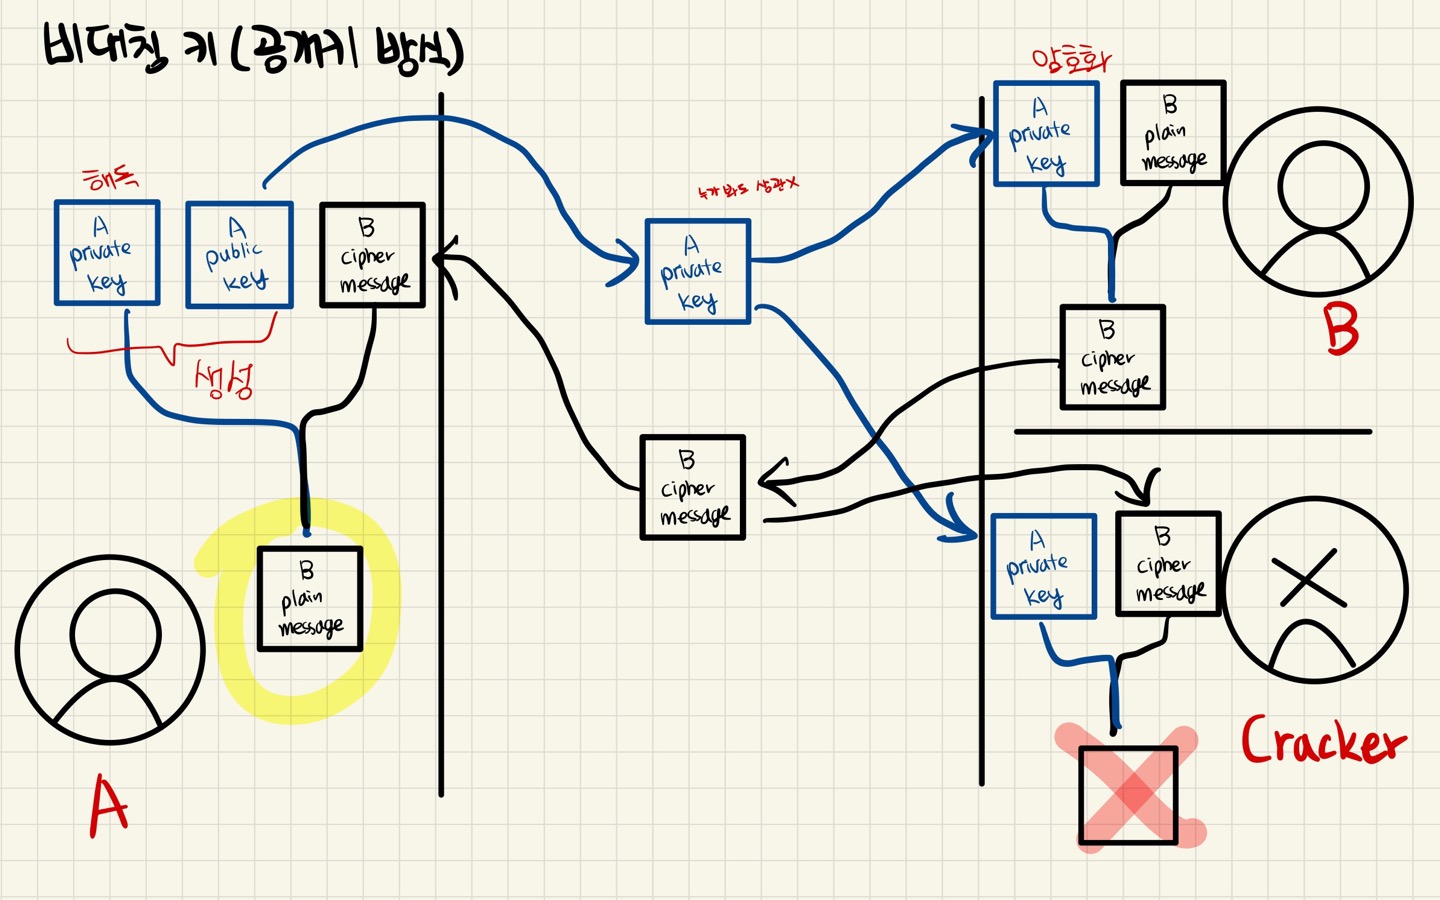 비대칭 키 (공개키 방식)
해독
A
private
key
A
public
key
B
cipher
message
생성
B
plain
message
A
누가 봐도 상관X
A
private
key
B
cipher
message
암호화
A
private
key
B
plain
message
B
cipher
message
B
A
private
key
B
cipher
message
Cracker